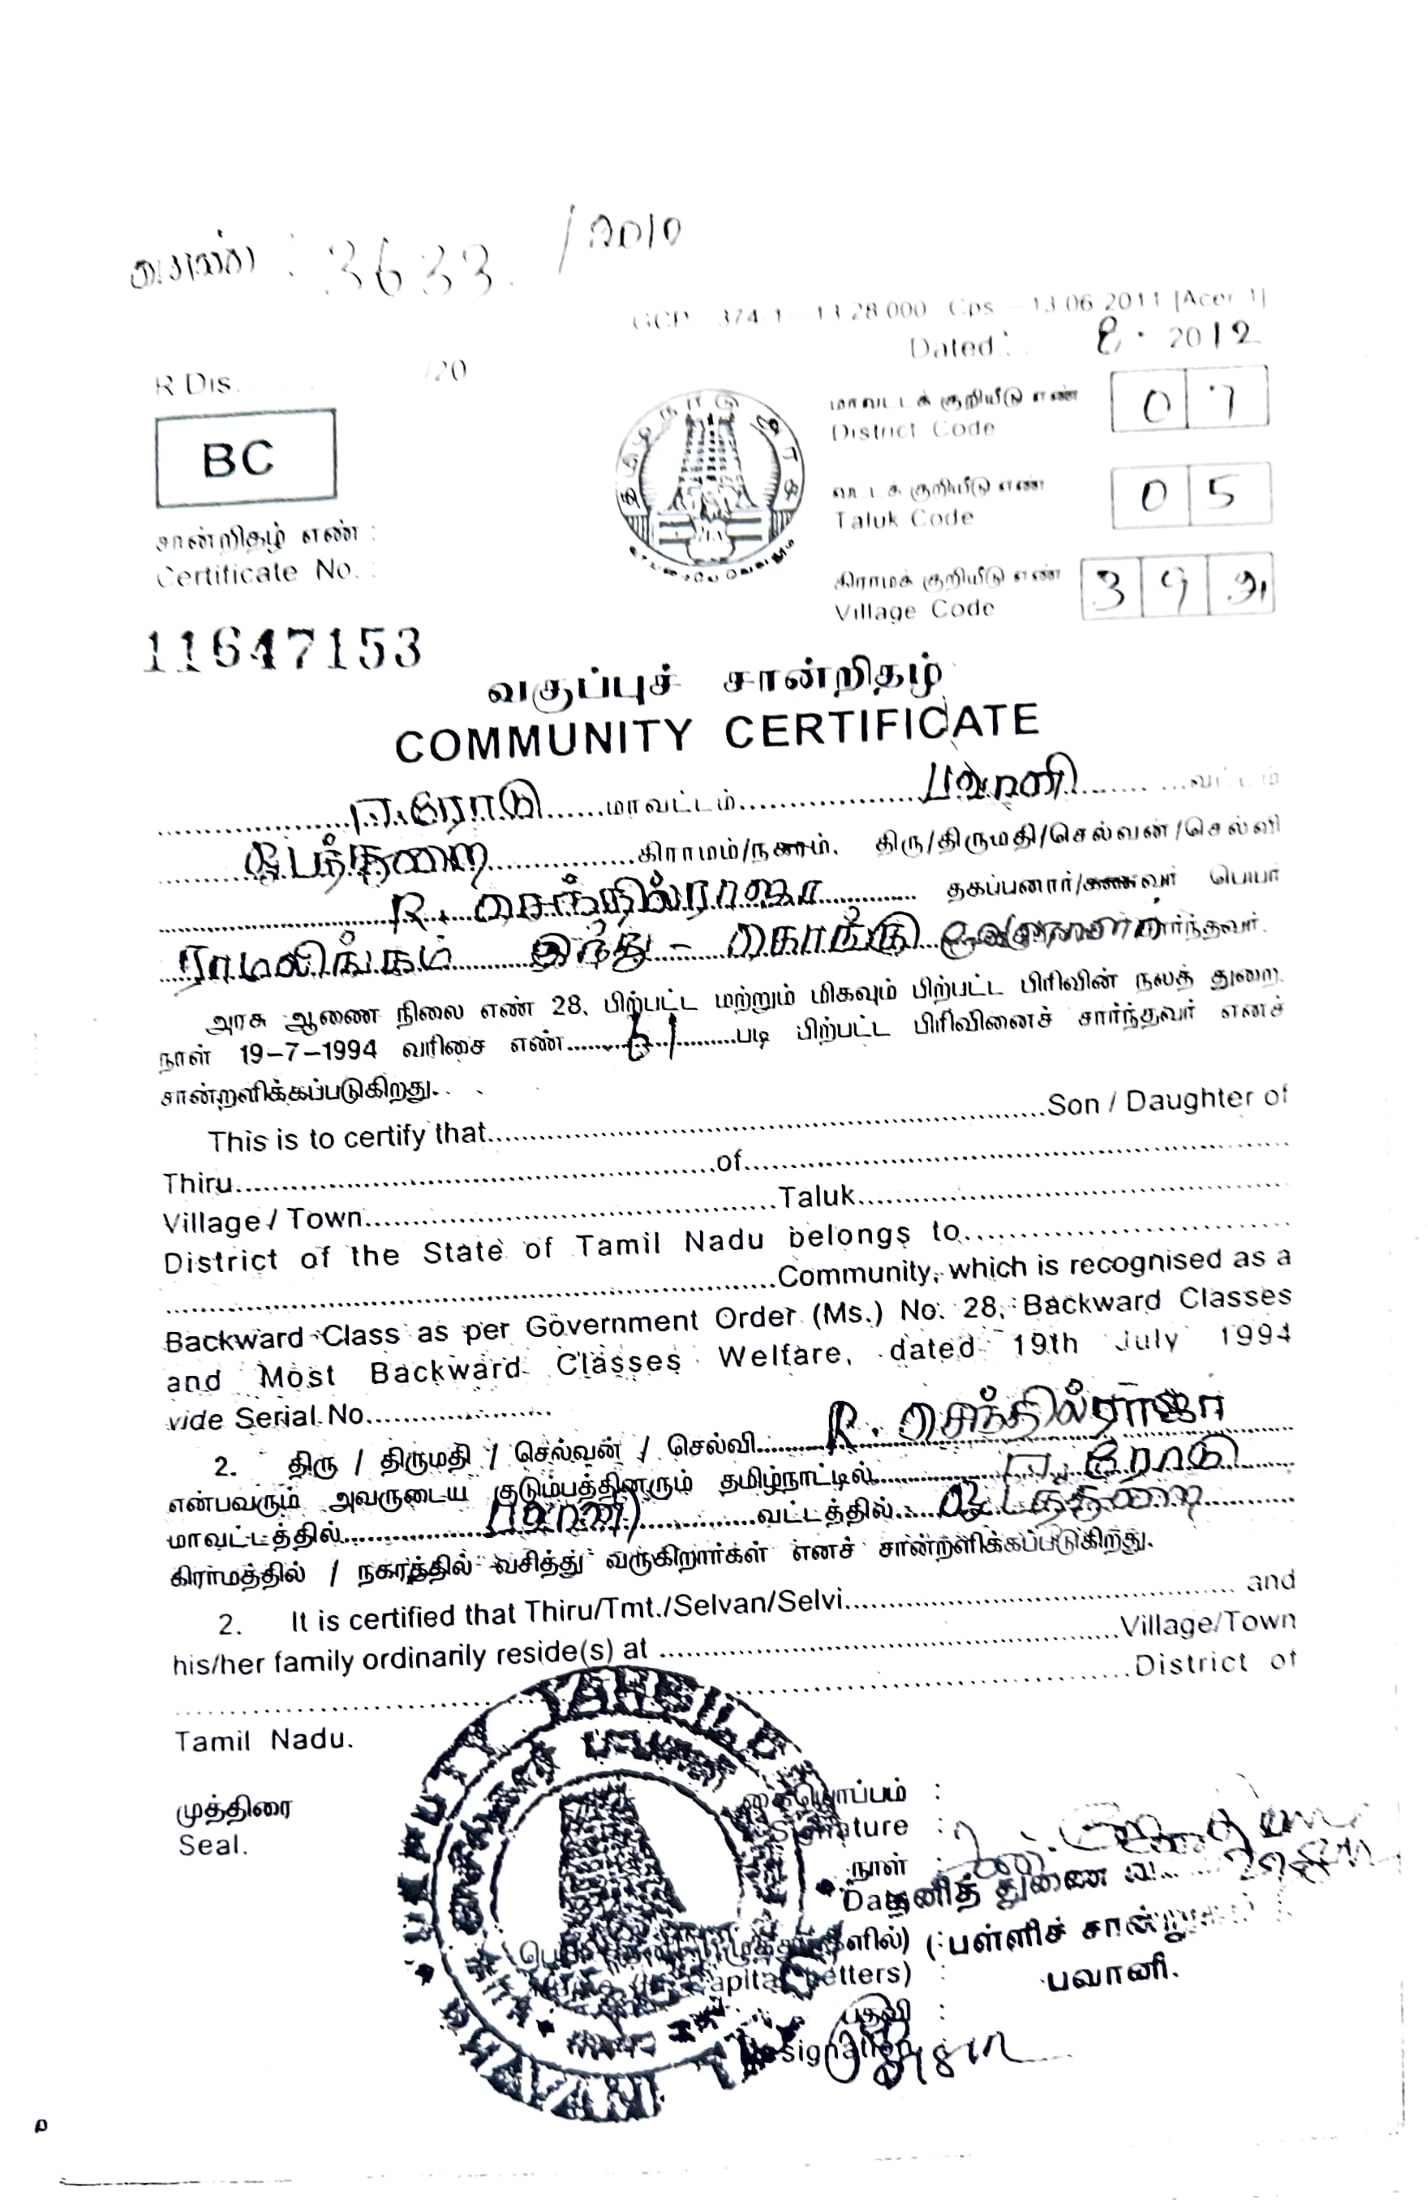 3633 / 2010
GCP 374-1-13-28.000 Cps - 13.06.2011 [Acer 1]
Dated : 8 . 2012
R Dis. /20
BC
மாவட்டக் குறியீடு எண் 0 7
District Code
வட்டக் குறியீடு எண் 0 5
Taluk Code
சான்றிதழ் எண் :
Certificate No. :
கிராமக் குறியீடு எண் 3 9
Village Code
11647153
வகுப்புச் சான்றிதழ்
COMMUNITY CERTIFICATE
ஈரோடு மாவட்டம் பவானி வட்டம்
கிராமம்/நகரம். திரு/திருமதி/செல்வன்/செல்வி
R. செந்தில்ராஜா தகப்பனார்/கணவர் பெயர்
ராமலிங்கம் இந்து - கொங்கு சார்ந்தவர்.
அரசு ஆணை நிலை எண் 28, பிற்பட்ட மற்றும் மிகவும் பிற்பட்ட பிரிவின் நலத் துறை
நாள் 19-7-1994 வரிசை எண் 61 படி பிற்பட்ட பிரிவினைச் சார்ந்தவர் எனச்
சான்றளிக்கப்படுகிறது.
This is to certify that Son / Daughter of
Thiru of
Village / Town Taluk
District of the State of Tamil Nadu belongs to
Community, which is recognised as a
Backward Class as per Government Order (Ms.) No. 28, Backward Classes
and Most Backward Classes Welfare, dated 19th July 1994
vide Serial No.
2. திரு / திருமதி / செல்வன் / செல்வி R. செந்தில்ராஜா
என்பவரும் அவருடைய குடும்பத்தினரும் தமிழ்நாட்டில் ஈரோடு
மாவட்டத்தில் பவானி வட்டத்தில்
கிராமத்தில் / நகரத்தில் வசித்து வருகிறார்கள் எனச் சான்றளிக்கப்படுகிறது.
2. It is certified that Thiru/Tmt./Selvan/Selvi and
his/her family ordinarily reside(s) at Village/Town
District of
Tamil Nadu.
DEPUTY TAHSILDAR
முத்திரை
Seal.
கையொப்பம் :
Signature :
நாள் :
தனித் துணை
(பள்ளிச்
பவானி.
பதவி :
Designation